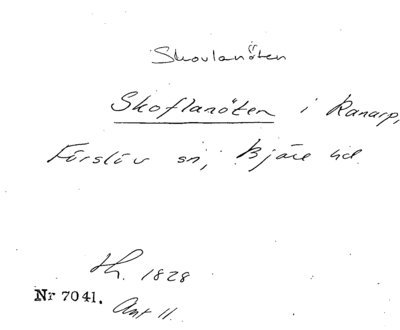 Skovlanöten
Skoflanöten i Ranarp,
Förslöv sn, Bjäre hd
Lh. 1828
Nr 7041. Akt 11.